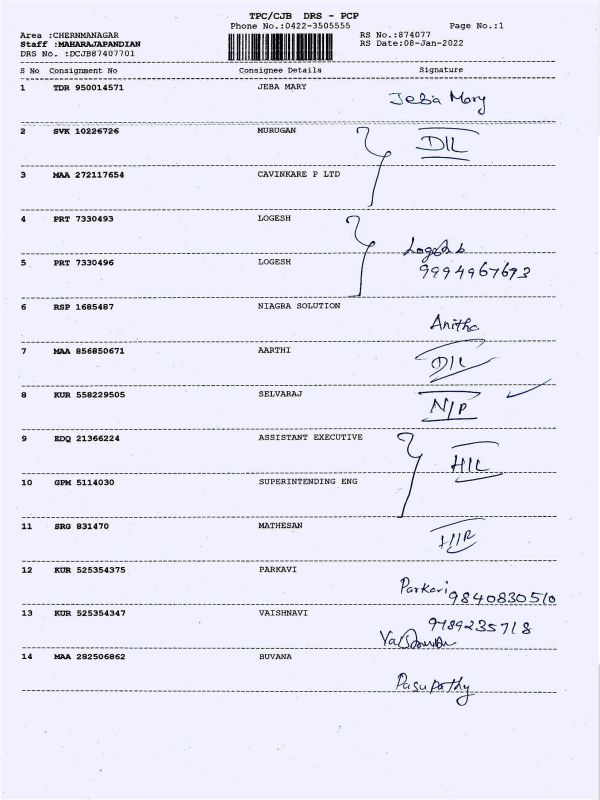 TPC/CJB DRS - PCP
Phone No.:0422-3505555 Page No.:1
Area :CHERNMANAGAR RS No.:874077
Staff :MAHARAJAPANDIAN RS Date:08-Jan-2022
DRS No. :DCJB87407701
S No Consignment No Consignee Details Signature
1 TDR 950014571 JEBA MARY Jeba Mary
2 SVK 10226726 MURUGAN D/L
3 MAA 272117654 CAVINKARE P LTD
4 PRT 7330493 LOGESH
Logesh b
5 PRT 7330496 LOGESH 9994967693
6 RSP 1685487 NIAGRA SOLUTION Anitha
7 MAA 856850671 AARTHI D/L
8 KUR 558229505 SELVARAJ N/P
9 EDQ 21366224 ASSISTANT EXECUTIVE H/L
10 GPM 5114030 SUPERINTENDING ENG
11 SRG 831470 MATHESAN
12 KUR 525354375 PARKAVI Parkavi 9840830510
13 KUR 525354347 VAISHNAVI 9789235718
14 MAA 282506862 BUVANA Pasupathy